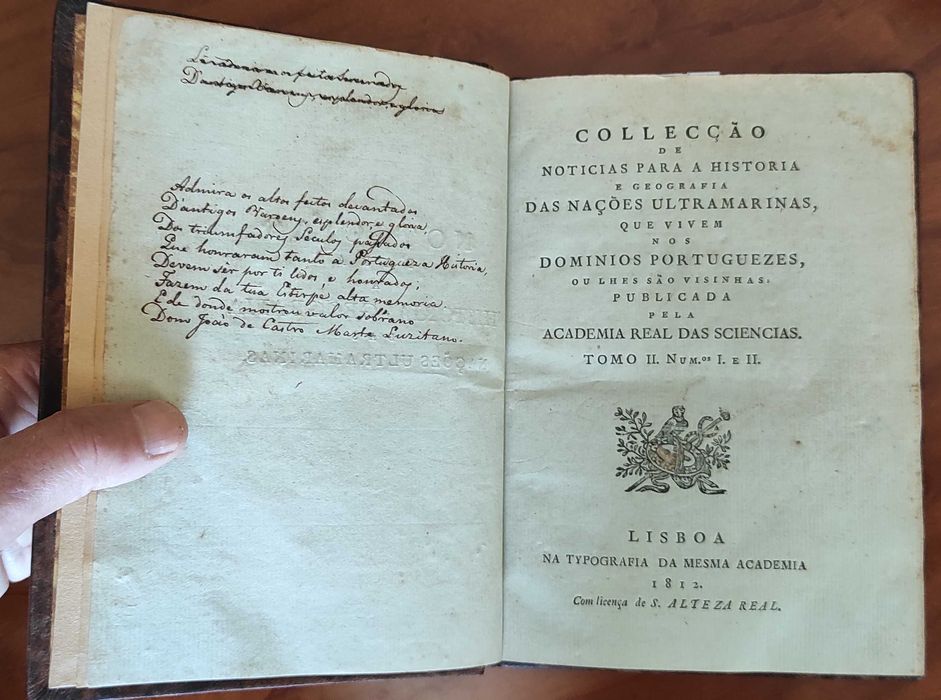 D'antigos Baroens, esplendor, e gloria
Admira os altos feitos levantados
D'antigos Baroens, esplendor, e gloria,
Dos triumfadores Seculos passados
Que honraram tanto a Portugueza Historia,
Devem ser por ti lidos, e honrados,
Fazem da tua Estirpe alta memoria.
E de donde mostrou valor sobrano
Dom João de Castro Marte Luzitano.
COLLECÇÃO
DE
NOTICIAS PARA A HISTORIA
E GEOGRAFIA
DAS NAÇÕES ULTRAMARINAS,
QUE VIVEM
NOS
DOMINIOS PORTUGUEZES,
OU LHES SÃO VISINHAS:
PUBLICADA
PELA
ACADEMIA REAL DAS SCIENCIAS.
TOMO II. NUM.os I. E II.
LISBOA
NA TYPOGRAFIA DA MESMA ACADEMIA
1812.
Com licença de S. ALTEZA REAL.